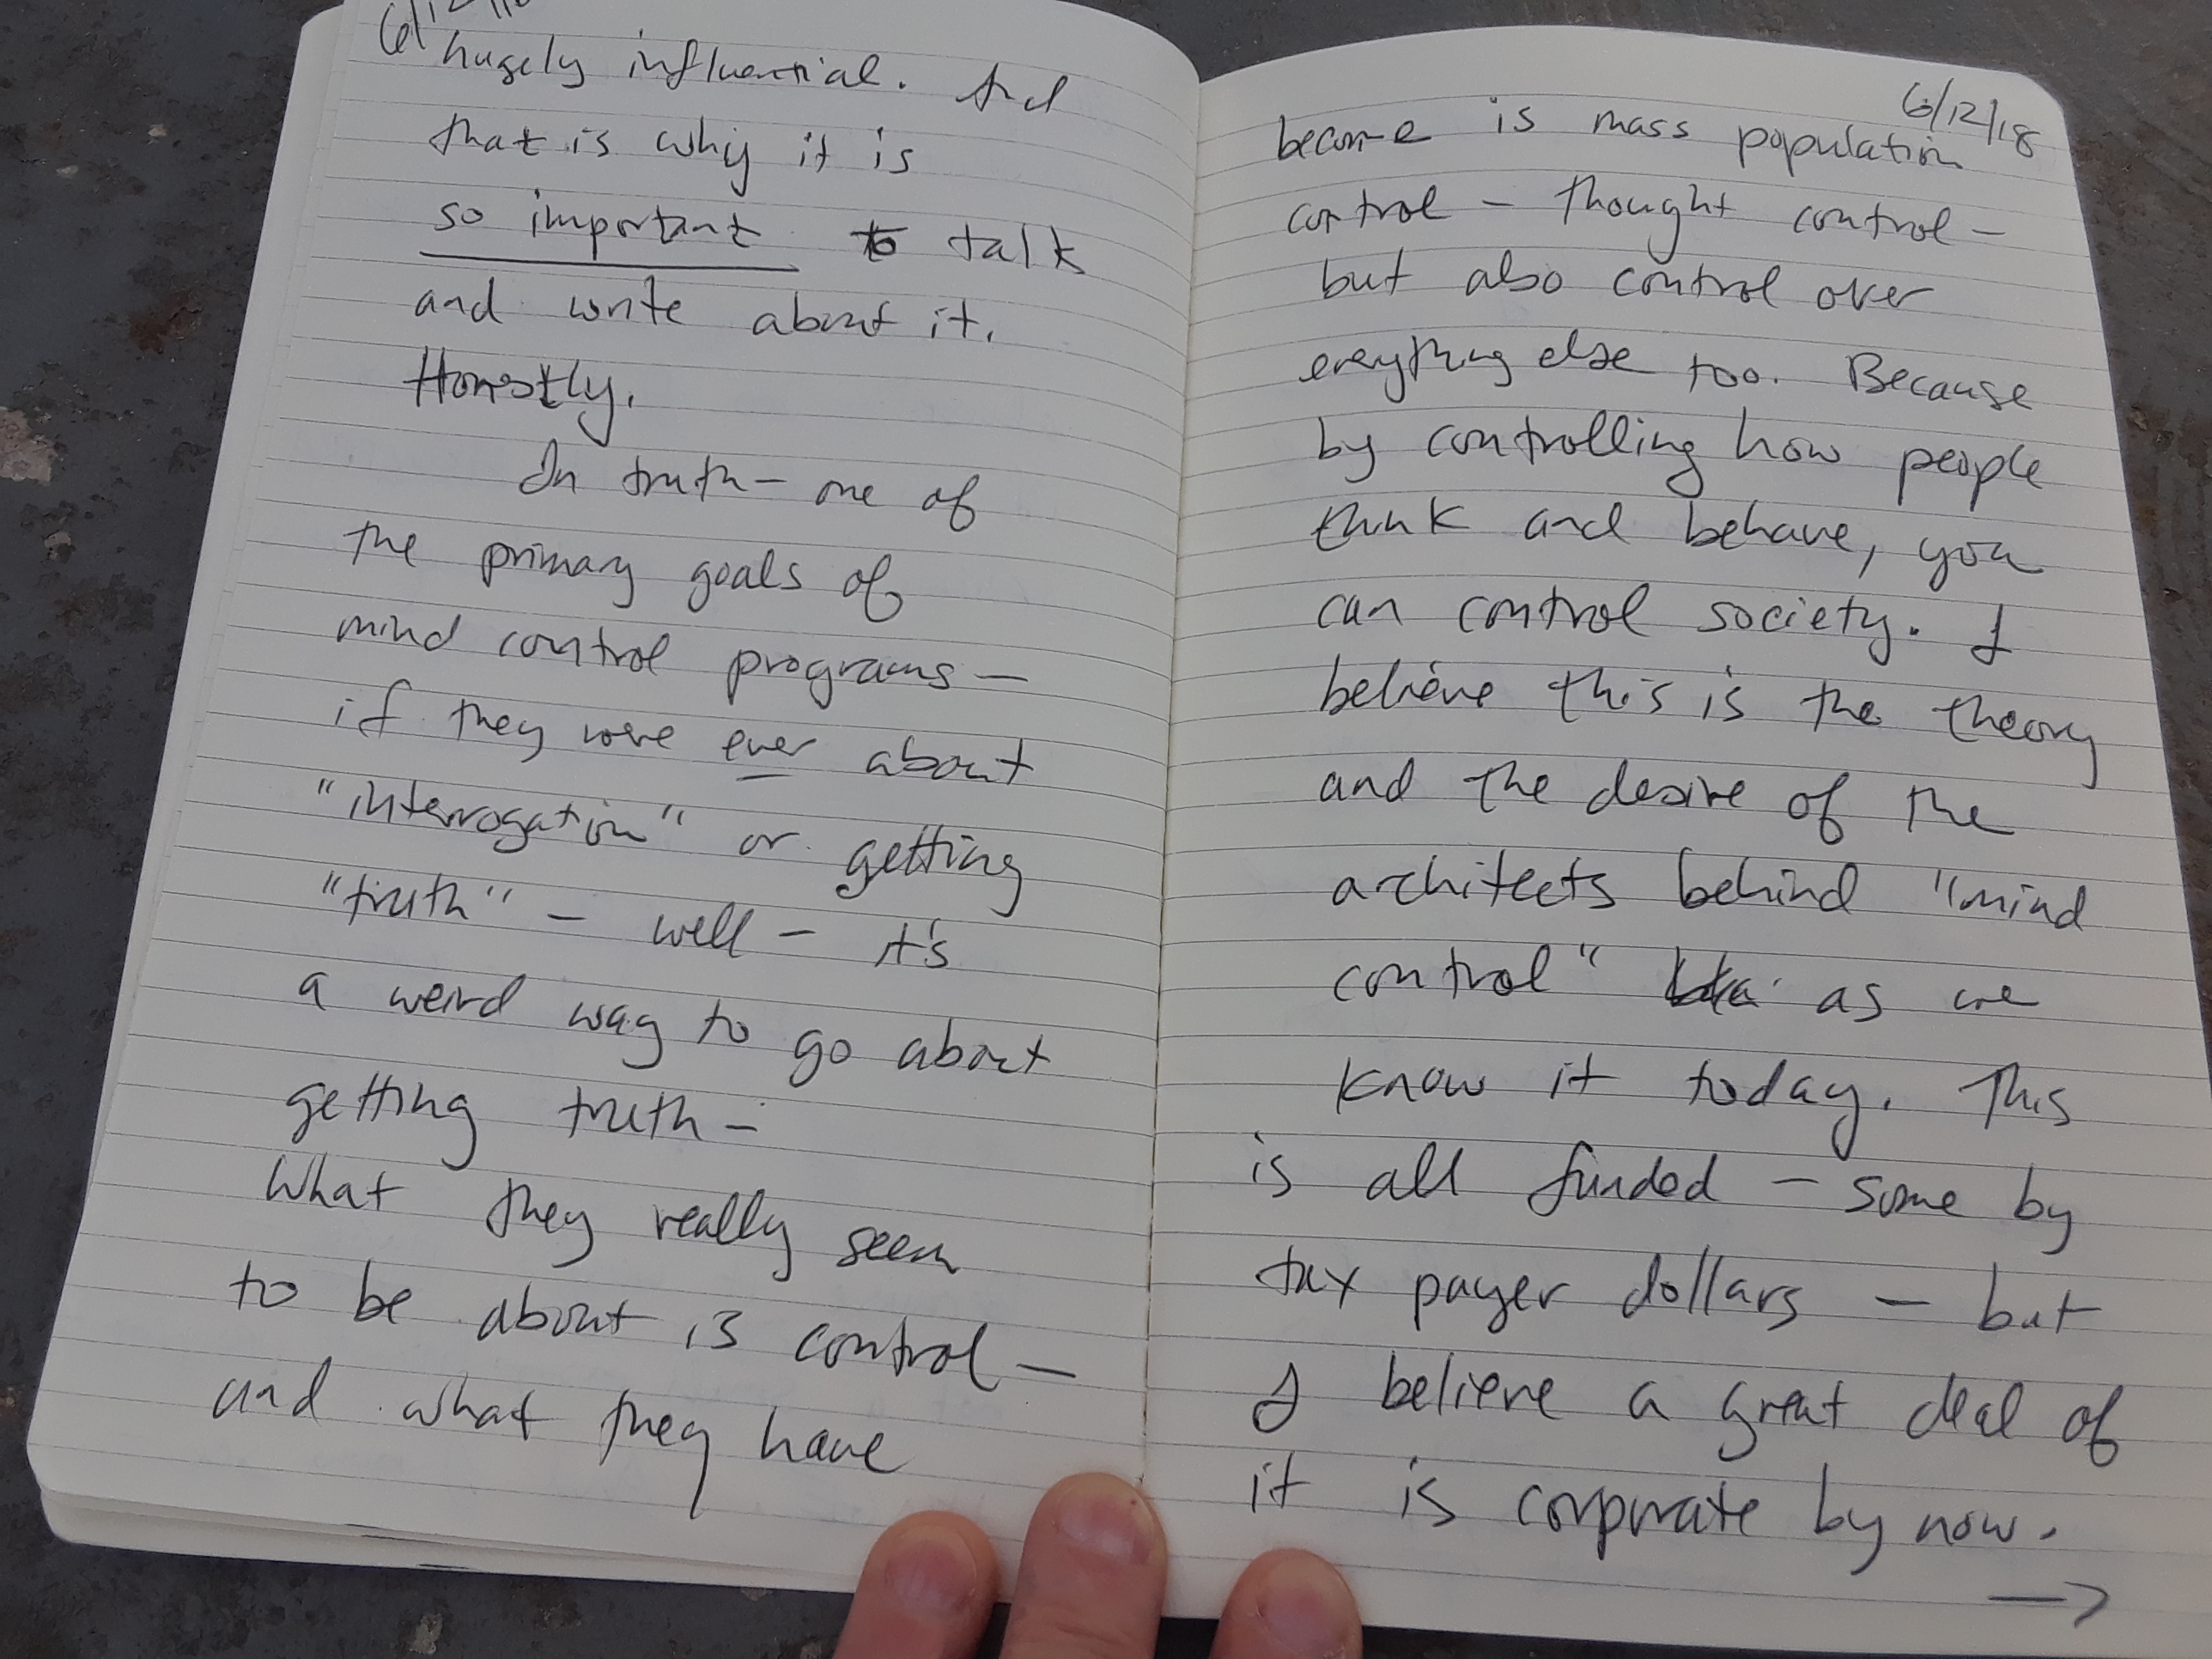 hugely influential. And
that is why it is
so important to talk
and write about it.
Honestly.
In truth – one of
the primary goals of
mind control programs –
if they were ever about
"interrogation" or getting
"truth" – well – it's
a weird way to go about
getting truth –
What they really seem
to be about is control –
and what they have
6/12/18
become is mass population
control – thought control –
but also control over
everything else too. Because
by controlling how people
think and behave, you
can control society. I
believe this is the theory
and the desire of the
architects behind "mind
control" as we
know it today. This
is all funded – some by
tax payer dollars – but
I believe a great deal of
it is corporate by now.
→